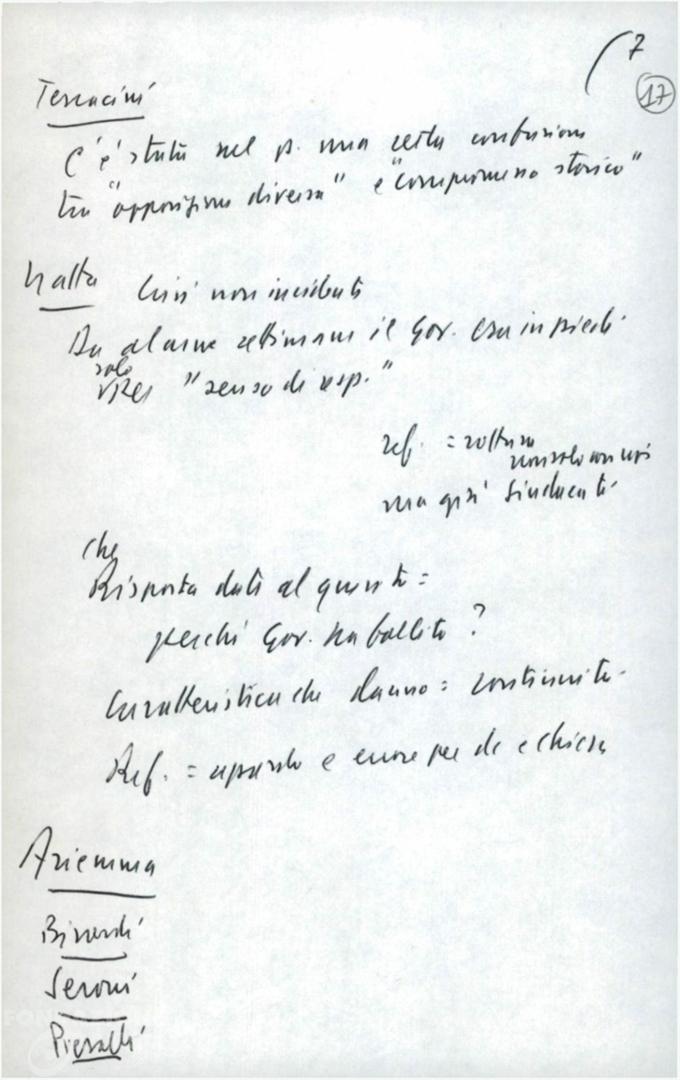 7
17
Terracini
C'è stata nel p. una certa confusione
tra "opposizione diversa" e "compromesso storico"
Natta Crisi non incidente
Da alcune settimane il Gov. era in piedi
solo
"senso di resp."
ref. = rottura
non solo con noi
ma gesi sindacati
che
Risposta dati al quesito =
perché Gov. ha fallito?
Caratteristica che danno = continuità
Ref. = azzardo e errore per dc e chiesa
Ariemma
Birardi
Seroni
Pieralli